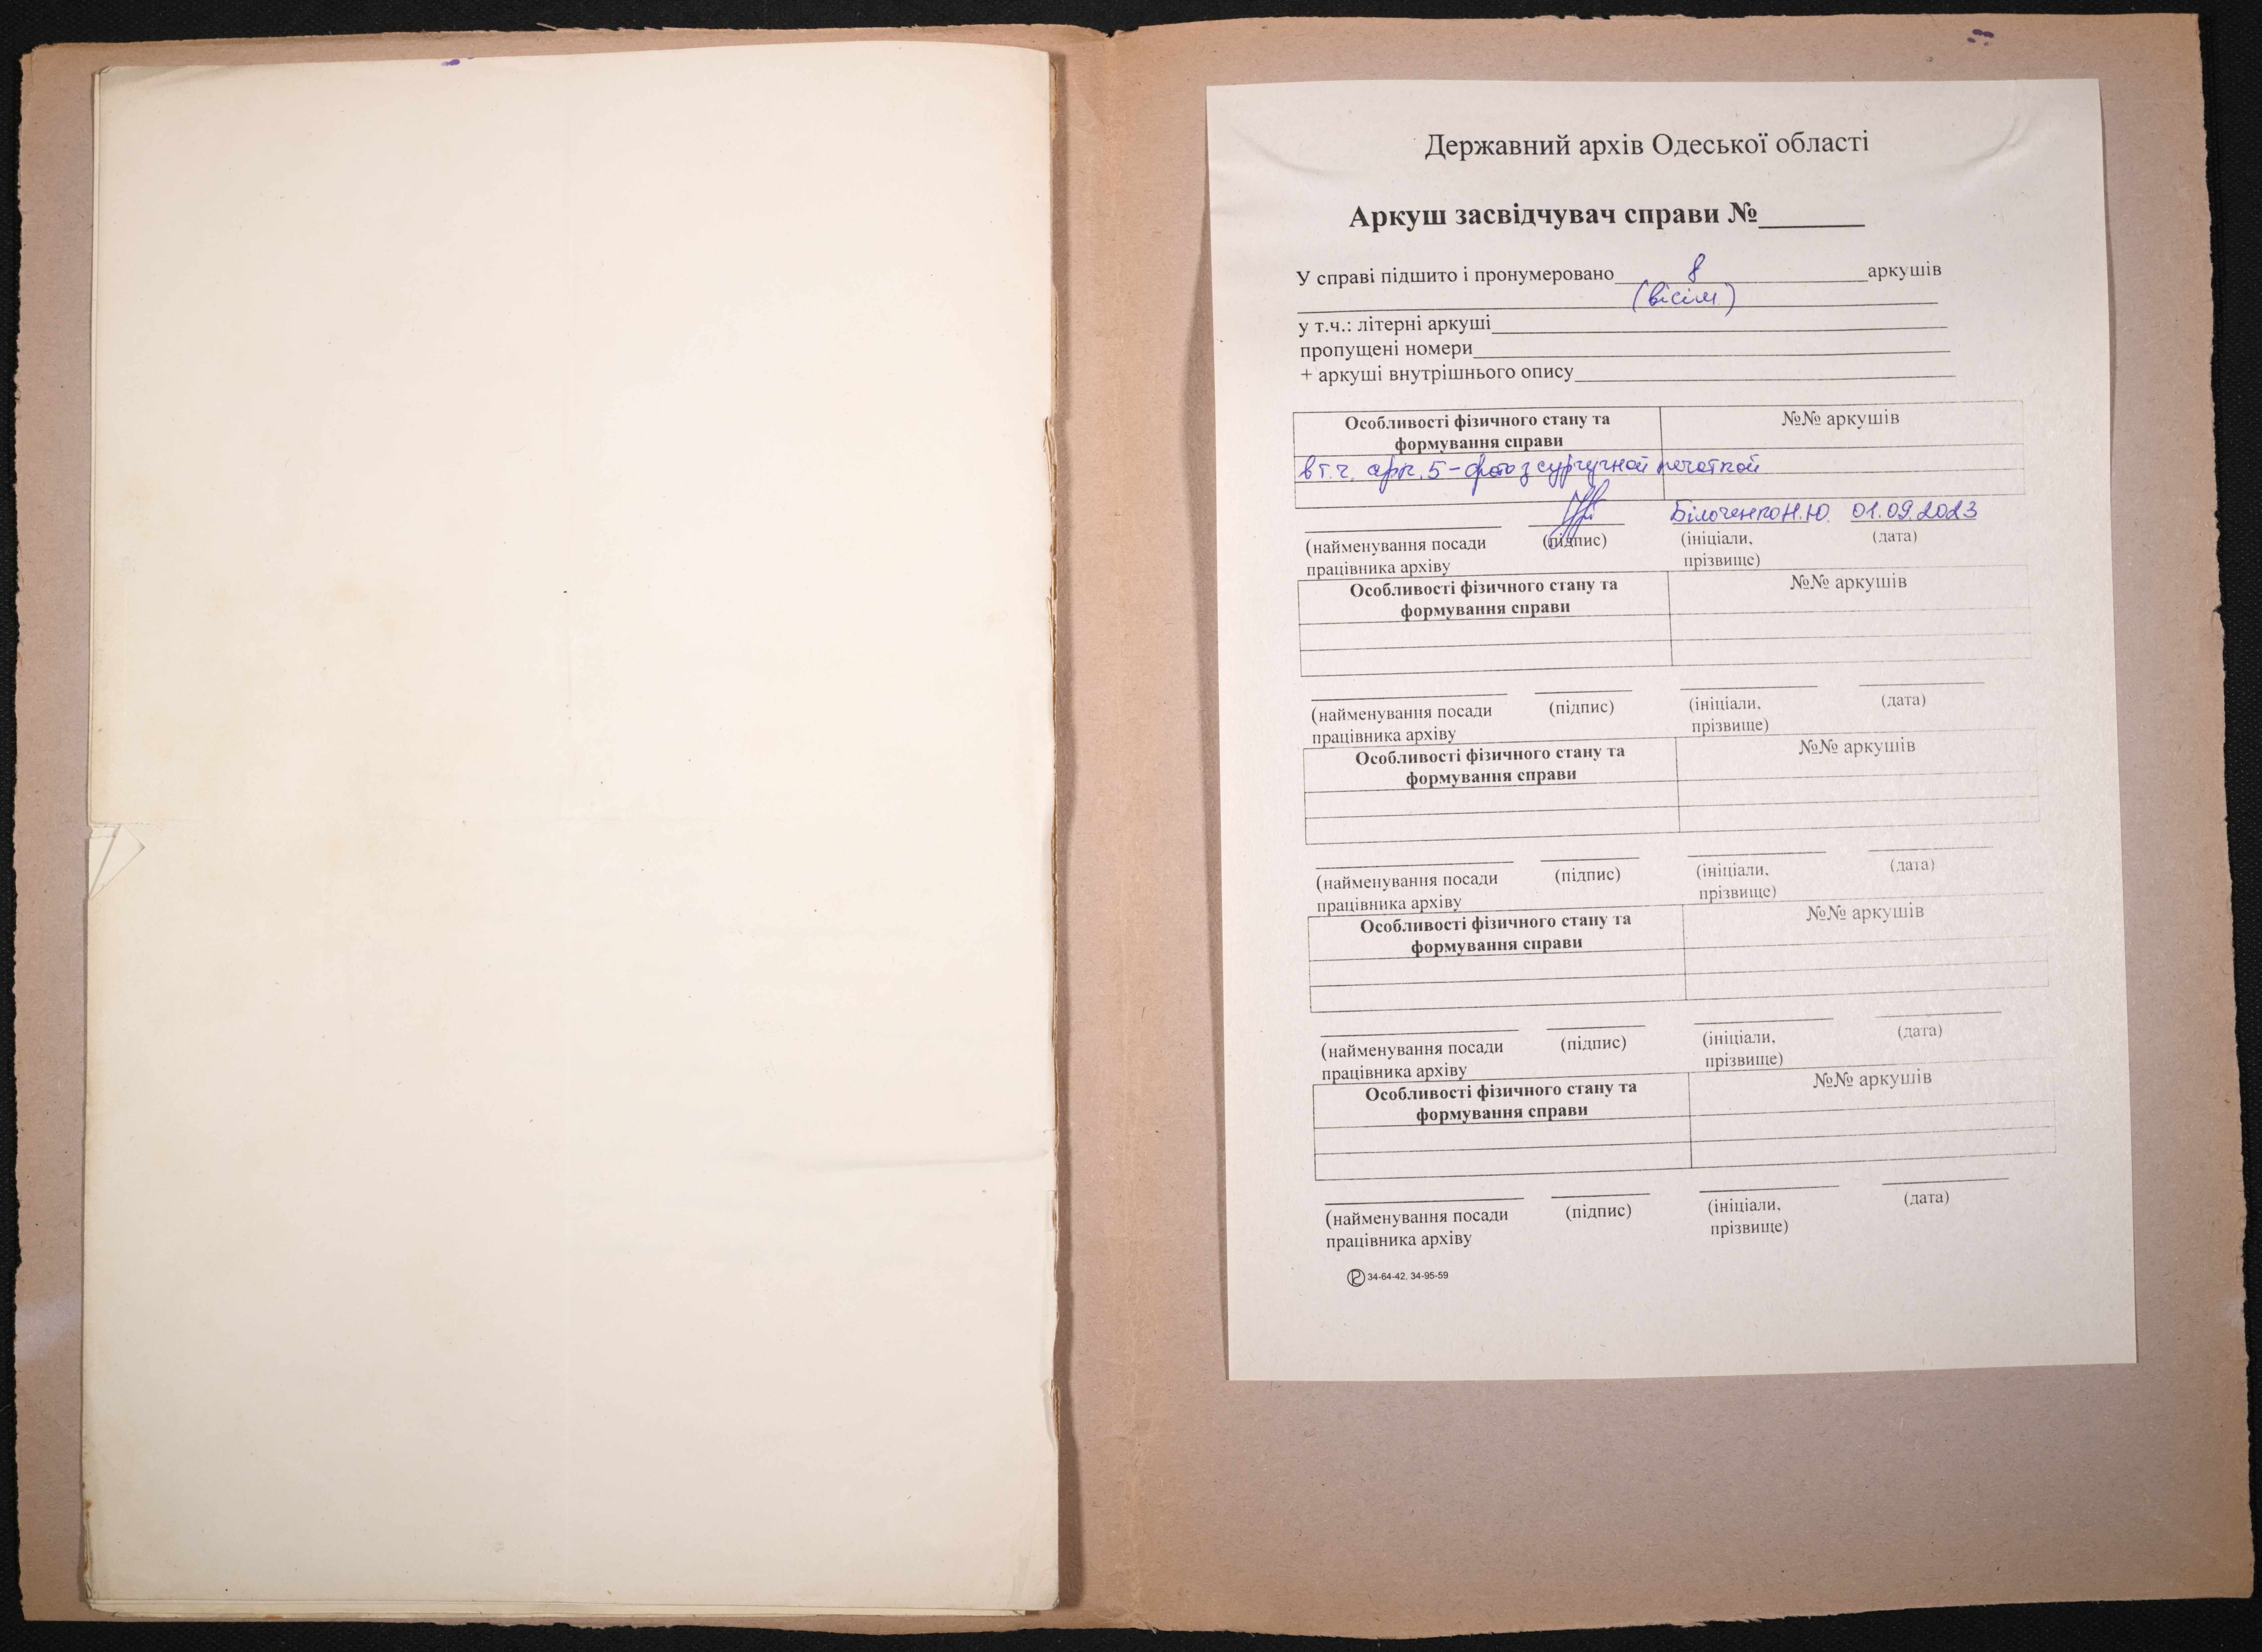 Державний архів Одеської області
Аркуш засвідчувач справи №________
У справі підшито і пронумеровано 8 аркушів
(вісім)
у т.ч.: літерні аркуші
пропущені номери
+ аркуші внутрішнього опису
Особливості фізичного стану та №№ аркушів
формування справи
в т.ч. арк. 5 - фото з сургучной печаткой
Білоченко Н.Ю. 01.09.2023
(найменування посади (підпис) (ініціали, (дата)
працівника архіву прізвище)
Особливості фізичного стану та №№ аркушів
формування справи
(найменування посади (підпис) (ініціали, (дата)
працівника архіву прізвище)
Особливості фізичного стану та №№ аркушів
формування справи
(найменування посади (підпис) (ініціали, (дата)
працівника архіву прізвище)
Особливості фізичного стану та №№ аркушів
формування справи
(найменування посади (підпис) (ініціали, (дата)
працівника архіву прізвище)
Особливості фізичного стану та №№ аркушів
формування справи
(найменування посади (підпис) (ініціали, (дата)
працівника архіву прізвище)
34-64-42, 34-95-59